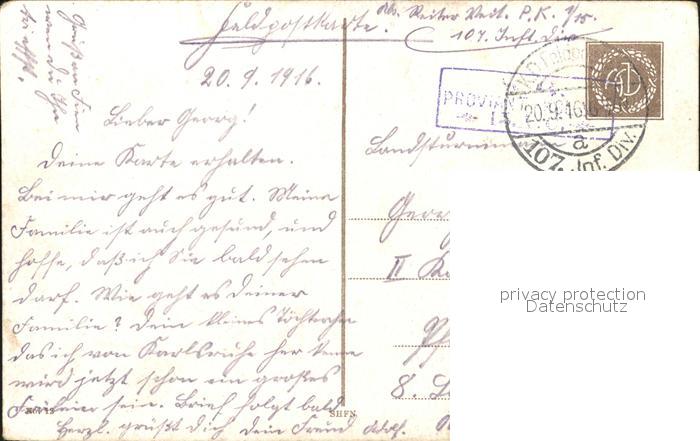 Feldpostkarte.
Abs. Reiter Veit. P.K. 1/15.
107. Inft. Div
20. 9. 1916.
Lieber Georg!
Deine Karte erhalten.
Bei mir geht es gut. Meine
Familie ist auch gesund, und
hoffe, daß ich Sie bald sehen
darf. Wie geht es Deiner
Familie? Dein kleines Töchterchen
das ich von Karlsruhe her kenne
wird jetzt schon ein großes
sein. Brief folgt bald
Herzl. grüßt Dich Dein Freund Adolf.
Grüße
wenn Du Ihn
triffst.
PROVIAN
20.9.16
a
107. Inf. Div.
Landsturmm
Geor
II K
Pf
8.
SHFN
privacy protection
Datenschutz